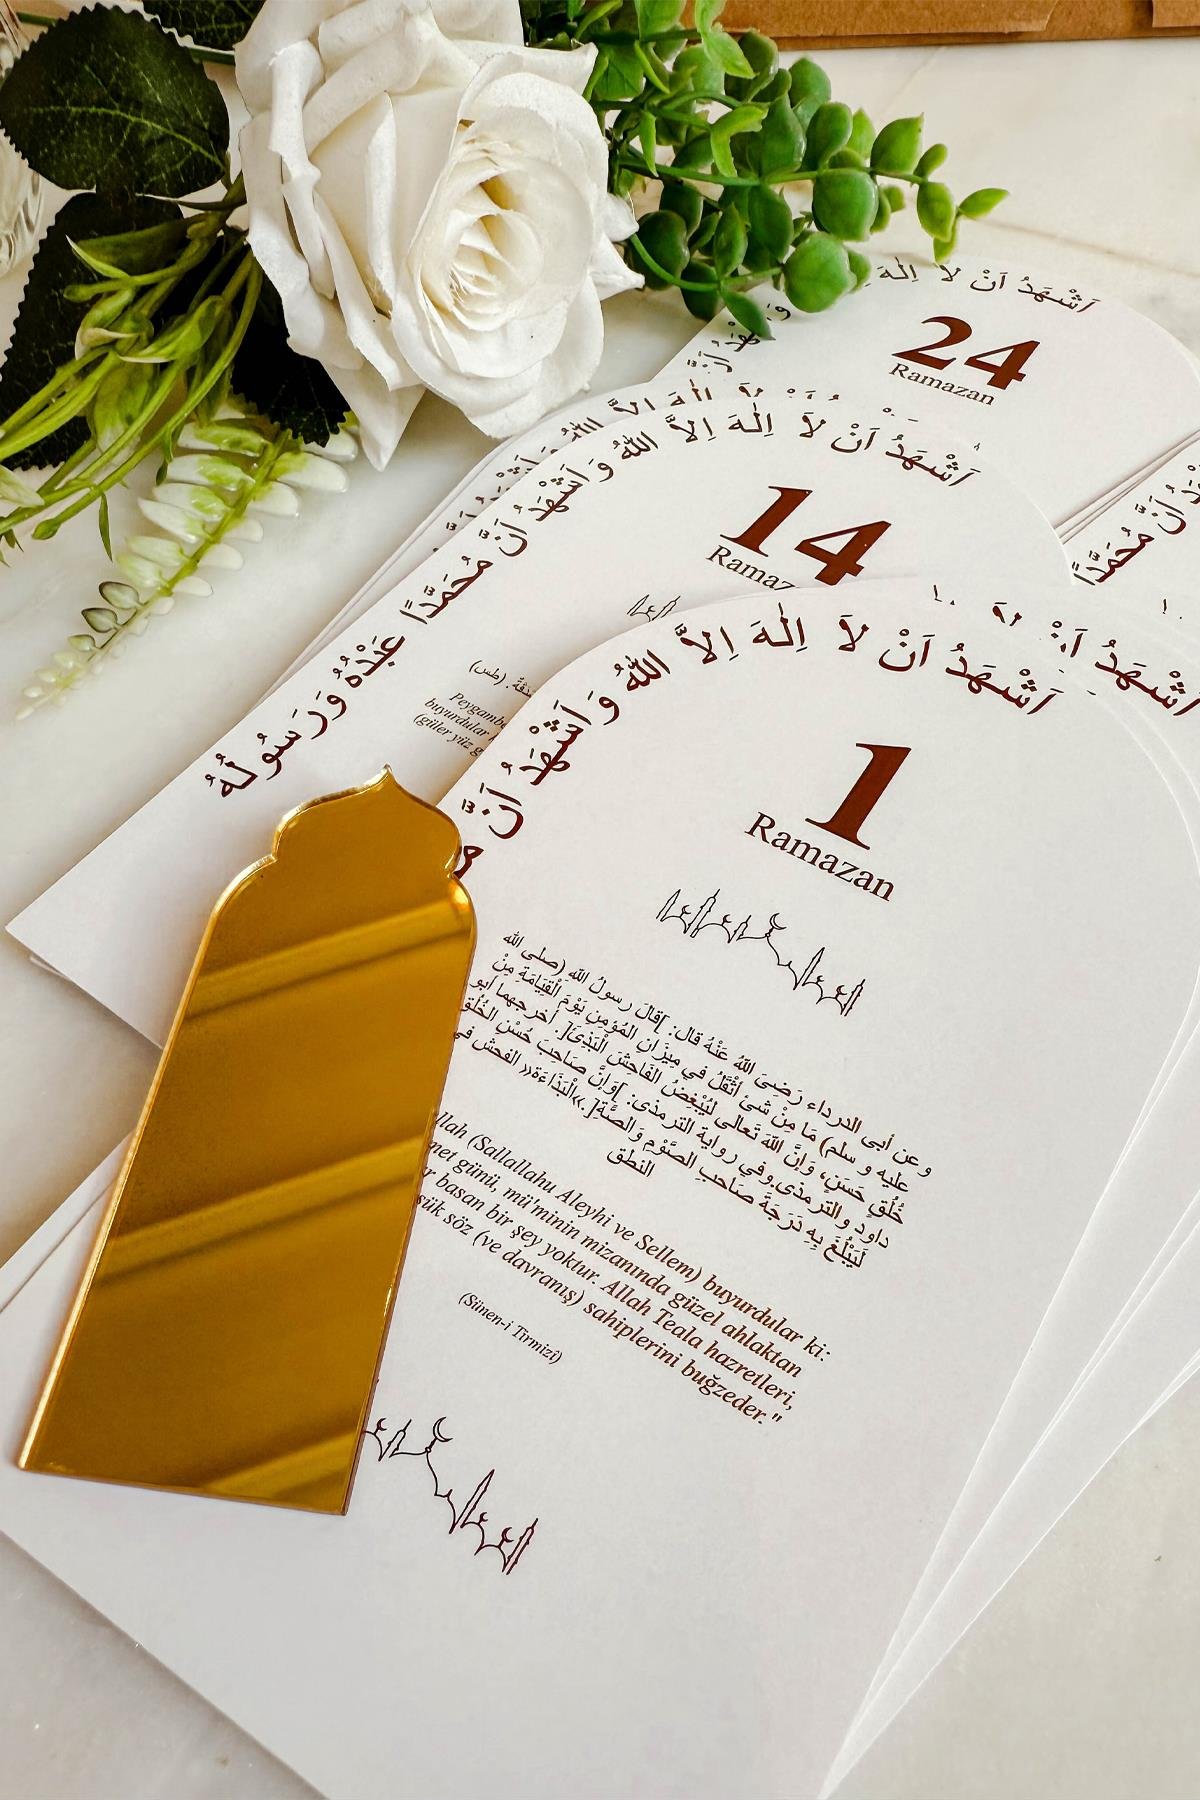 اَشْهَدُ اَنْ لَا اِلٰهَ
وَ اَشْهَدُ اَنَّ
24
Ramazan
اَشْهَدُ اَنْ لَا اِلٰهَ اِلاَّ اللهُ وَ اَشْهَدُ اَنَّ مُحَمَّدًا عَبْدُهُ وَ رَسُولُهُ
14
Ramaz
(طس)
Peygambe
buyurdular
(güler yüz g
اَشْهَدُ اَنْ لَا اِلٰهَ اِلاَّ اللهُ وَ اَشْهَدُ اَنَّ
1
Ramazan
وعن أبى الدرداء رَضِىَ اللّهُ عَنْهُ قال: ]قالَ رسولُ اللّه (صلى الله
عليه و سلم) مَا مِنْ شَئٍ أثْقَلُ في مِيزَانِ المُؤمِنِ يَوْمَ الْقِيَامَةِ مِنْ
خُلُقٍ حَسَنٍ، وَإنَّ اللّهَ تَعالى لَيُبْغِضُ الفَاحِشَ الْبَذِئَ[. أخرجهما أبو
داود والترمذى.وفي رواية الترمذى: ]وَإنَّ صَاحِبَ حُسْنِ الخُلُقِ
لَيَبْلُغُ بِهِ دَرَجَةَ صَاحِبِ الصَّوْمِ وَالصَّةِ[.»الْبَذَاءَة« الفحش في
النطق
llah (Sallallahu Aleyhi ve Sellem) buyurdular ki:
met günü, mü'minin mizanında güzel ahlaktan
r basan bir şey yoktur. Allah Teala hazretleri,
sük söz (ve davranış) sahiplerini buğzeder."
(Sünen-i Tirmizî)
اَشْهَدُ اَنْ
مُحَمَّدًا